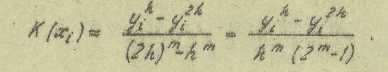 K(x_i) ≈ \frac{y_i^h - y_i^{2h}}{(2h)^m - h^m} = \frac{y_i^h - y_i^{2h}}{h^m (2^m - 1)}.